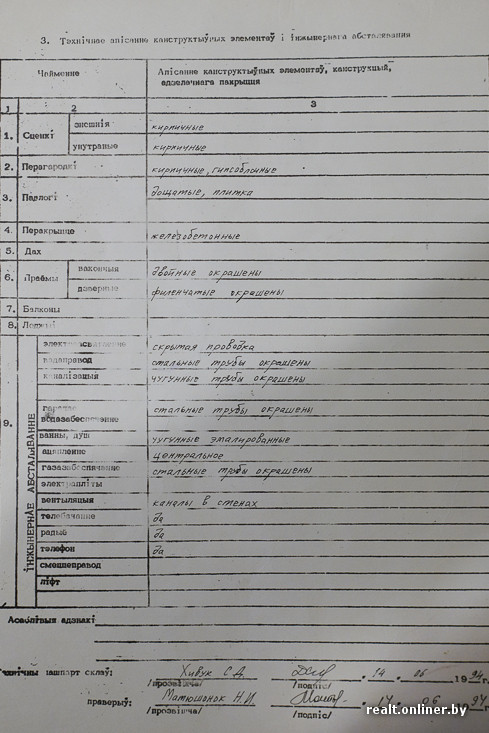 3. Тэхнічнае апісанне канструктыўных элементаў і інжынернага абсталявання
Найменне
Апісанне канструктыўных элементаў, канструкцый, аздзелачнага пакрыцця
1 2 3
1. Сценкі знешнія кирпичные
унутраные кирпичные
2. Перагародкі кирпичные, гипсоблочные
3. Падлогі дощатые, плитка
4. Перакрыцце железобетонные
5. Дах
6. Праёмы ваконныя двойные окрашены
дзверные филенчатые окрашены
7. Балконы
8. Лоджыі
9. ІНЖЫНЕРНАЕ АБСТАЛЯВАННЕ
скрытая проводка
вадаправод стальные трубы окрашены
каналізацыя чугунные трубы окрашены
гарачае водазабеспячэнне стальные трубы окрашены
ванны, душ чугунные эмалированные
ацяпленне центральное
газазабеспячэнне стальные трубы окрашены
электрапліты
вентыляцыя каналы в стенах
тэлебачанне да
радыё да
тэлефон да
смеццеправод
ліфт
Асаблівыя адзнакі
Тэхнічны пашпарт склаў: Хивук С.Д. 14 06 1994г.
/прозвішча/ /подпіс/
праверыў: Матюшонок Н.И. 17 06 94
/прозвішча/ /подпіс/
realt.onliner.by